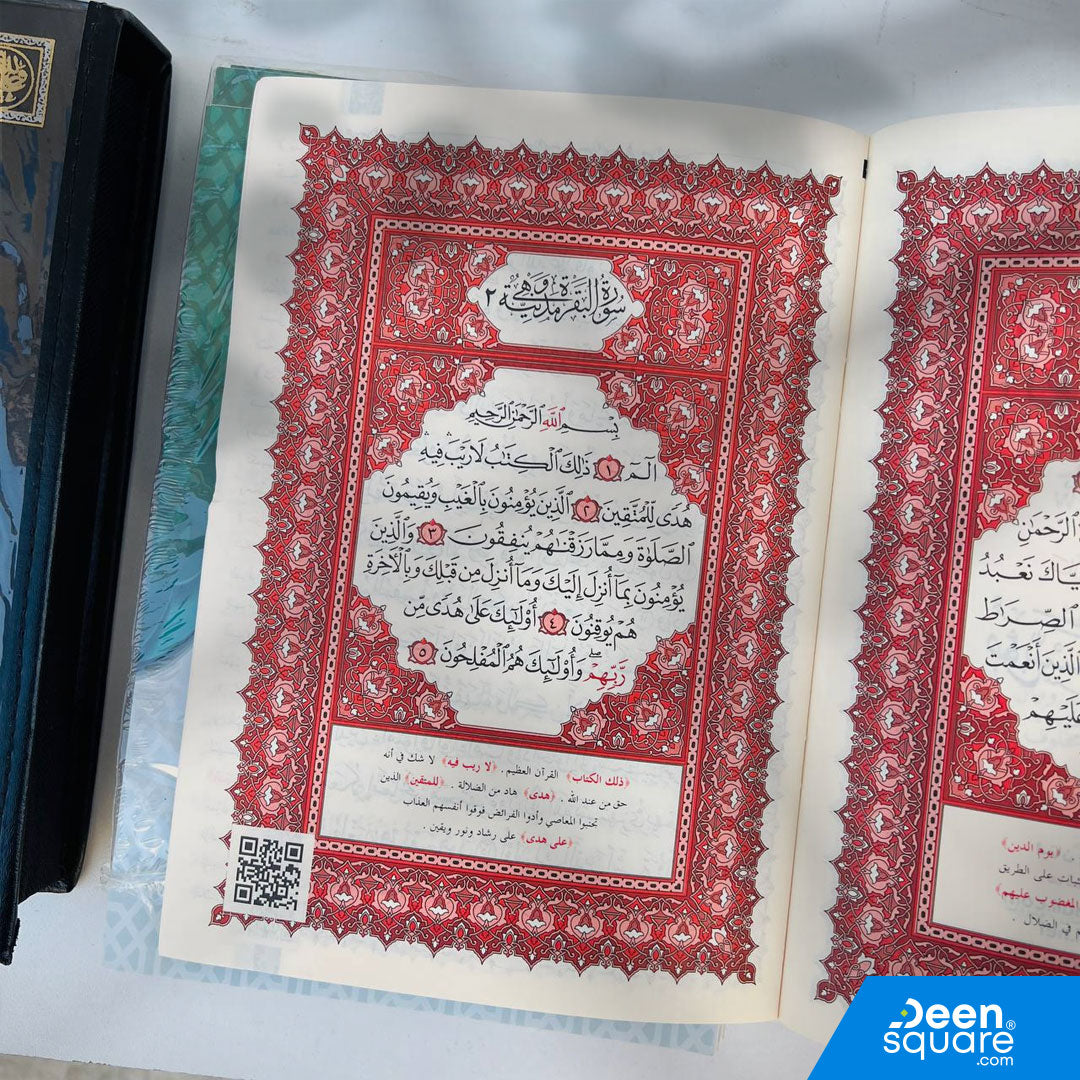 سورة البقرة مدنية وهي ٢
بِسْمِ اللَّهِ الرَّحْمَٰنِ الرَّحِيمِ
الٓمٓ ١ ذَٰلِكَ ٱلْكِتَٰبُ لَا رَيْبَ ۛ فِيهِ ۛ
هُدًى لِّلْمُتَّقِينَ ٢ ٱلَّذِينَ يُؤْمِنُونَ بِٱلْغَيْبِ وَيُقِيمُونَ
ٱلصَّلَوٰةَ وَمِمَّا رَزَقْنَٰهُمْ يُنفِقُونَ ٣ وَٱلَّذِينَ
يُؤْمِنُونَ بِمَآ أُنزِلَ إِلَيْكَ وَمَآ أُنزِلَ مِن قَبْلِكَ وَبِٱلْأَخِرَةِ
هُمْ يُوقِنُونَ ٤ أُو۟لَٰٓئِكَ عَلَىٰ هُدًى مِّن
رَّبِّهِمْ ۖ وَأُو۟لَٰٓئِكَ هُمُ ٱلْمُفْلِحُونَ ٥
﴿ذلك الكتاب﴾ القرآن العظيم . ﴿لا ريب فيه﴾ لا شك في أنه
حق من عند الله . ﴿هدى﴾ هاد من الضلالة . ﴿للمتقين﴾ الذين
تجنبوا المعاصي وأدوا الفرائض فوقوا أنفسهم العذاب
﴿على هدى﴾ على رشاد ونور ويقين .
ٱلرَّحْمَٰنِ
نَعْبُدُ
ٱلصِّرَٰطَ
ٱلَّذِينَ أَنْعَمْتَ
عَلَيْهِمْ
﴿يوم الدين﴾
على الطريق
المغضوب عليهم﴾
في الضلال .
Deen
square®
.com